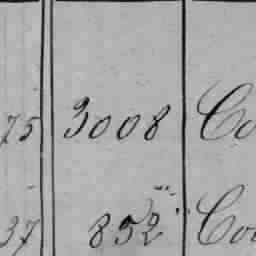 75 3008 Co
37 852 Coo